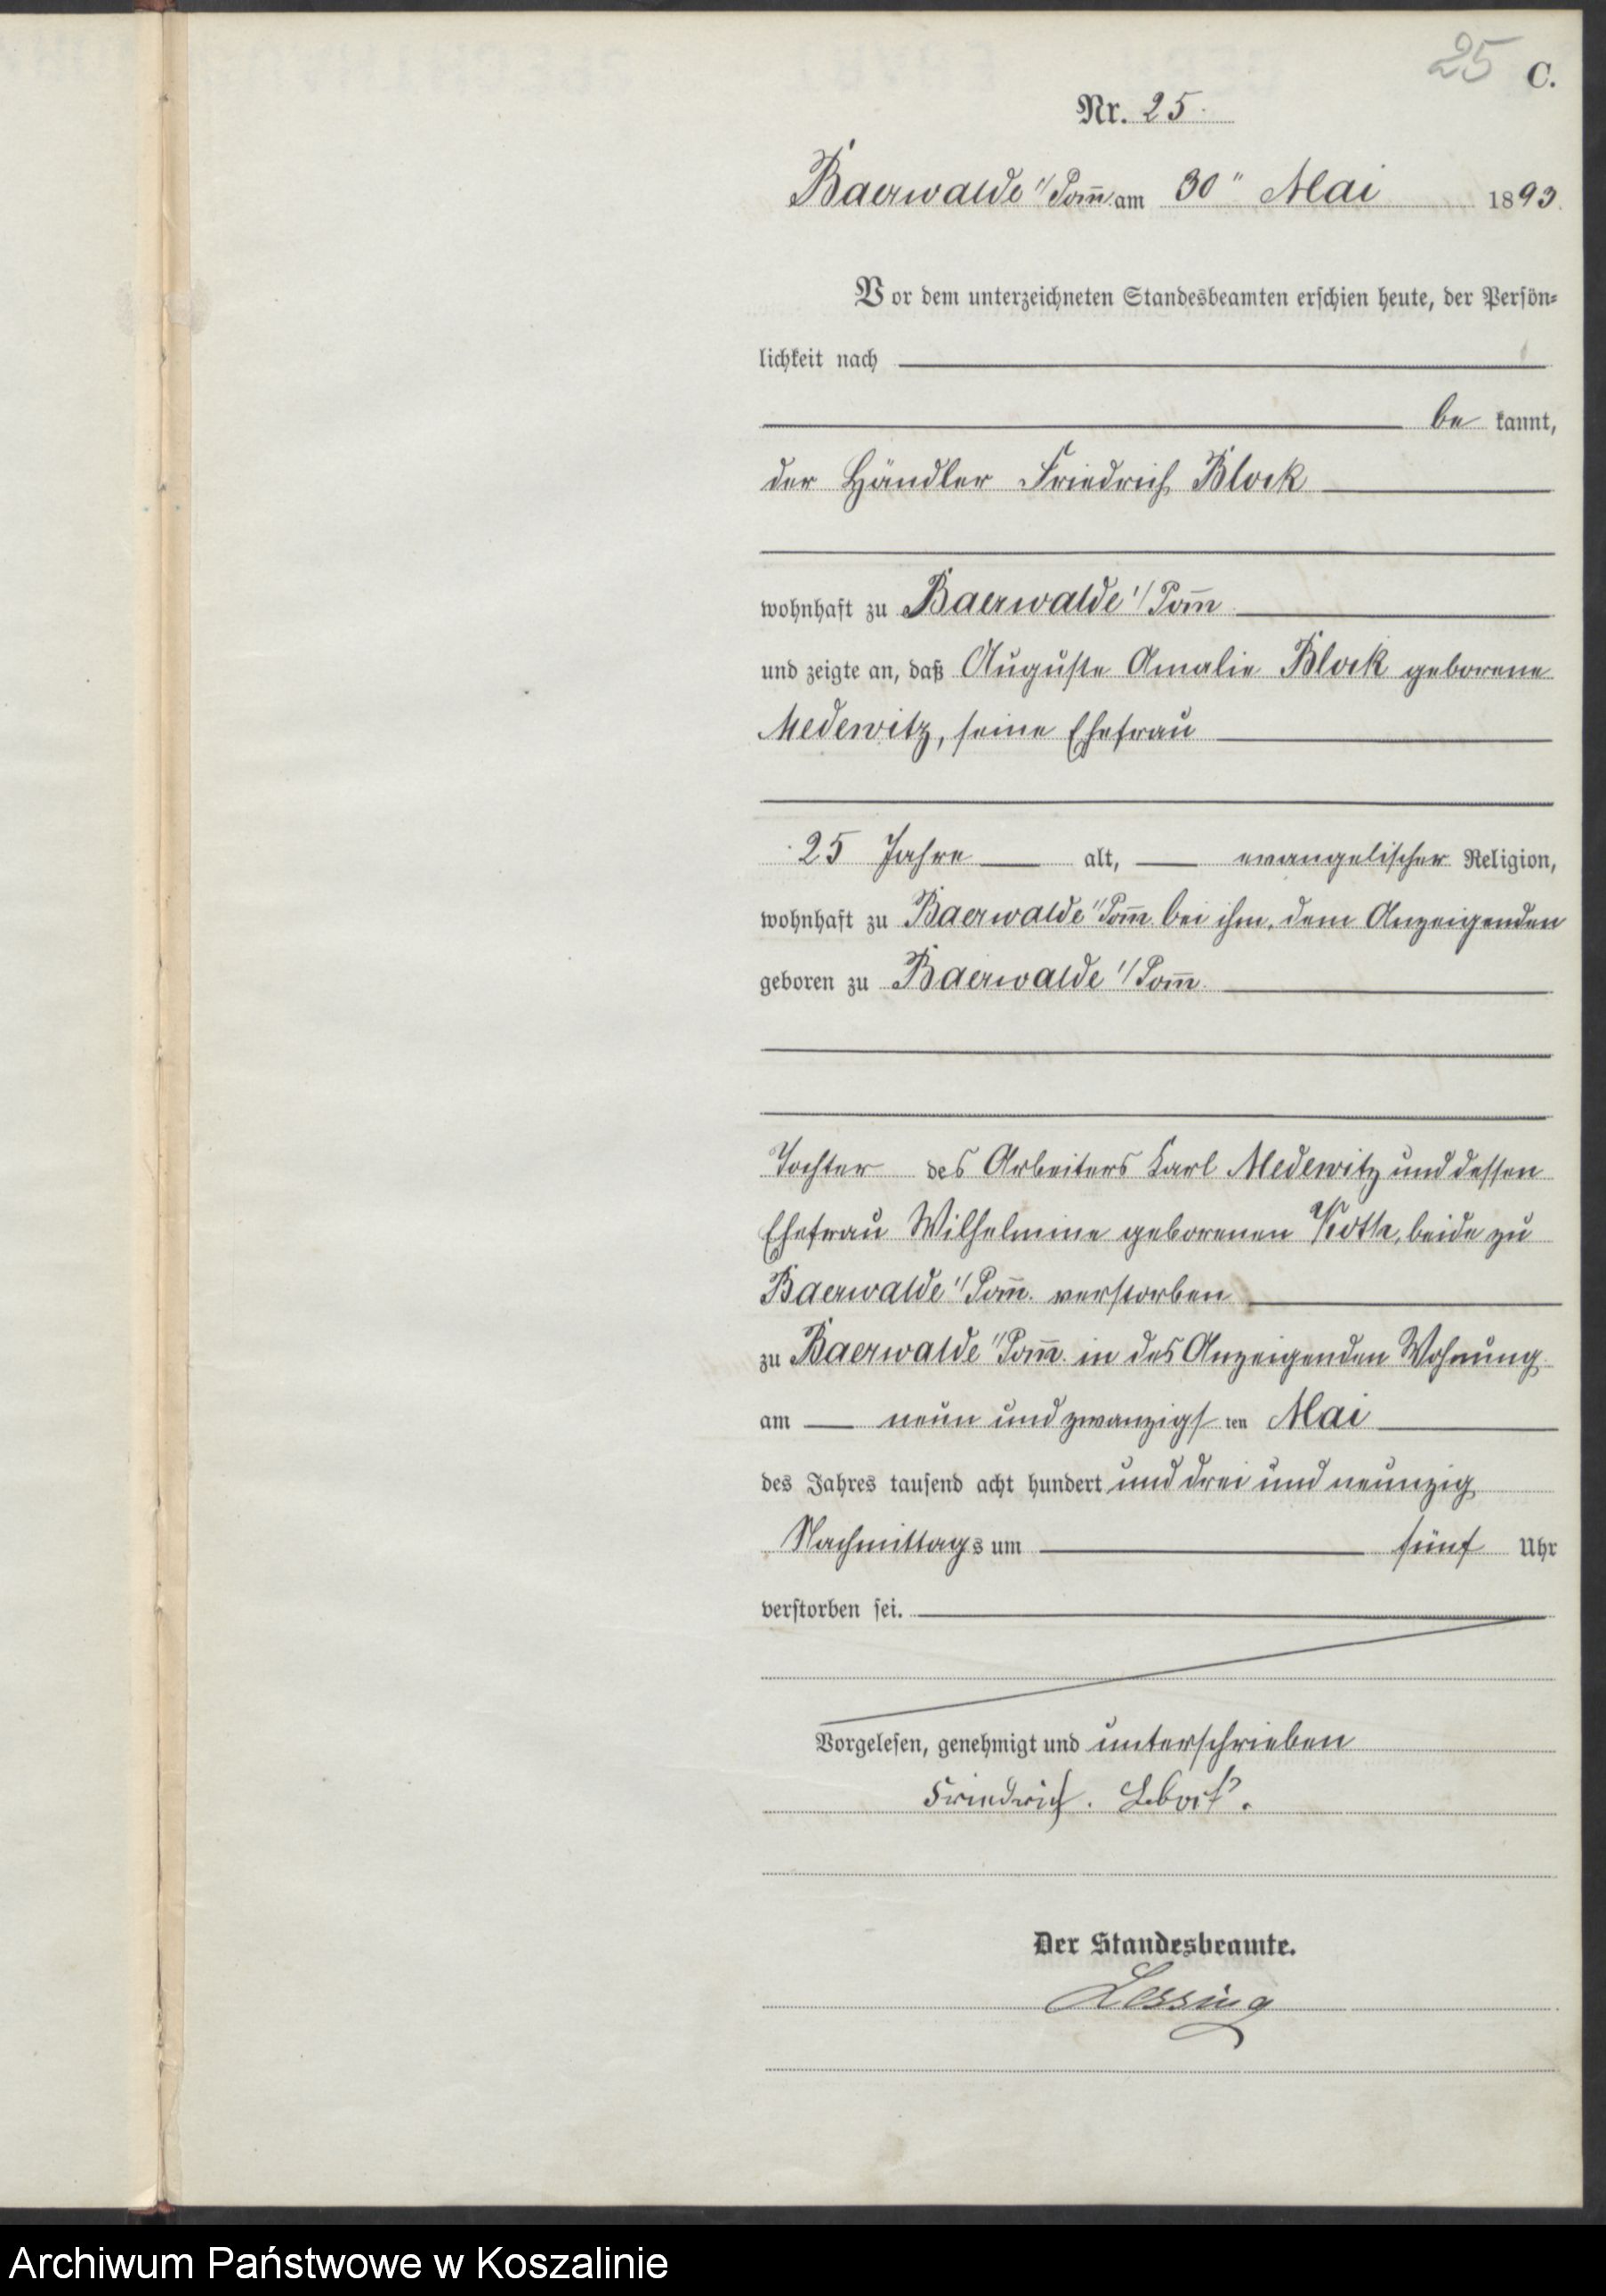 25 C.
Nr. 25.
Baerwalde i/Pom̄. am 30ᵗ Mai 1893.
Vor dem unterzeichneten Standesbeamten erschien heute, der Persön=
lichkeit nach
be kannt,
der Händler Friedrich Block
wohnhaft zu Baerwalde i/Pom̄
und zeigte an, daß Auguste Amalie Block geborene
Medewitz, seine Ehefrau
25 Jahre alt, evangelischer Religion,
wohnhaft zu Baerwalde i/Pom̄. bei ihm, dem Anzeigenden
geboren zu Baerwalde i/Pom̄.
Tochter des Arbeiters Karl Medewitz und dessen
Ehefrau Wilhelmine geborenen beide zu
Baerwalde i/Pom̄. verstorben
zu Baerwalde i/Pom̄. in des Anzeigenden Wohnung
am neun und zwanzigsten Mai
des Jahres tausend acht hundert und drei und neunzig
Nachmittags um fünf Uhr
verstorben sei.
Vorgelesen, genehmigt und unterschrieben
Friedrich. Block.
Der Standesbeamte.
Lessing
Archiwum Państwowe w Koszalinie